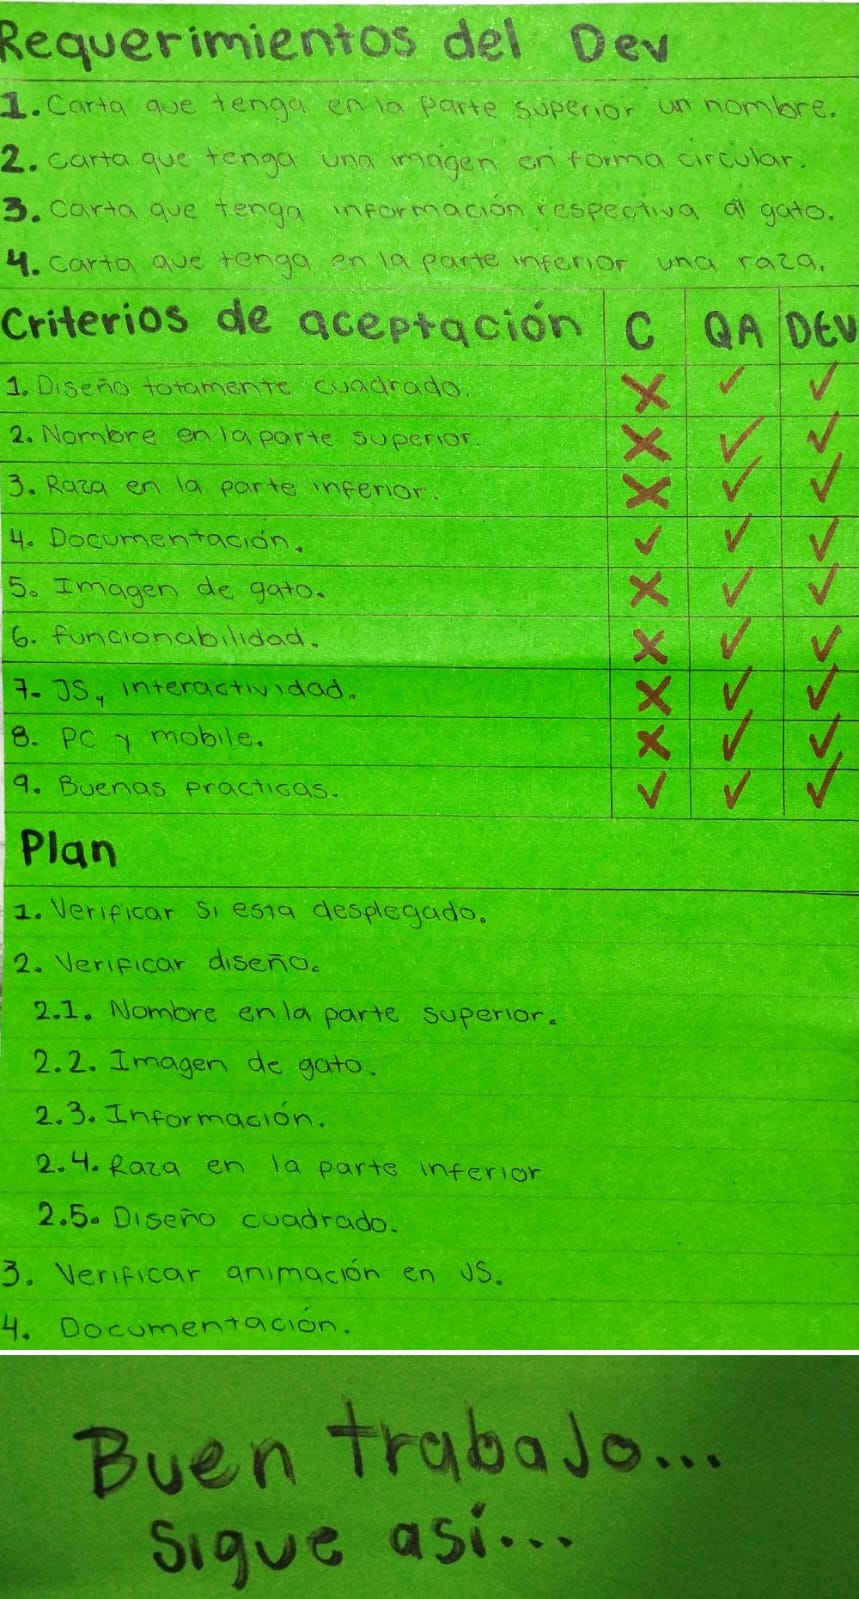 Requerimientos del Dev
1. Carta que tenga en la parte superior un nombre.
2. carta que tenga una imagen en forma circular.
3. carta que tenga información respectiva al gato.
4. carta que tenga en la parte inferior una raza.
Criterios de aceptación C QA DEV
1. Diseño totamente cuadrado. X ✓ ✓
2. Nombre en la parte superior. X ✓ ✓
3. Raza en la parte inferior. X ✓ ✓
4. Documentación. ✓ ✓ ✓
5. Imagen de gato. X ✓ ✓
6. funcionabilidad. X ✓ ✓
7. JS, interactividad. X ✓ ✓
8. PC y mobile. X ✓ ✓
9. Buenas practicas. ✓ ✓ ✓
Plan
1. Verificar si esta desplegado.
2. Verificar diseño.
2.1. Nombre en la parte superior.
2.2. Imagen de gato.
2.3. Información.
2.4. Raza en la parte inferior
2.5. Diseño cuadrado.
3. Verificar animación en JS.
4. Documentación.
Buen trabajo...
sigue así...